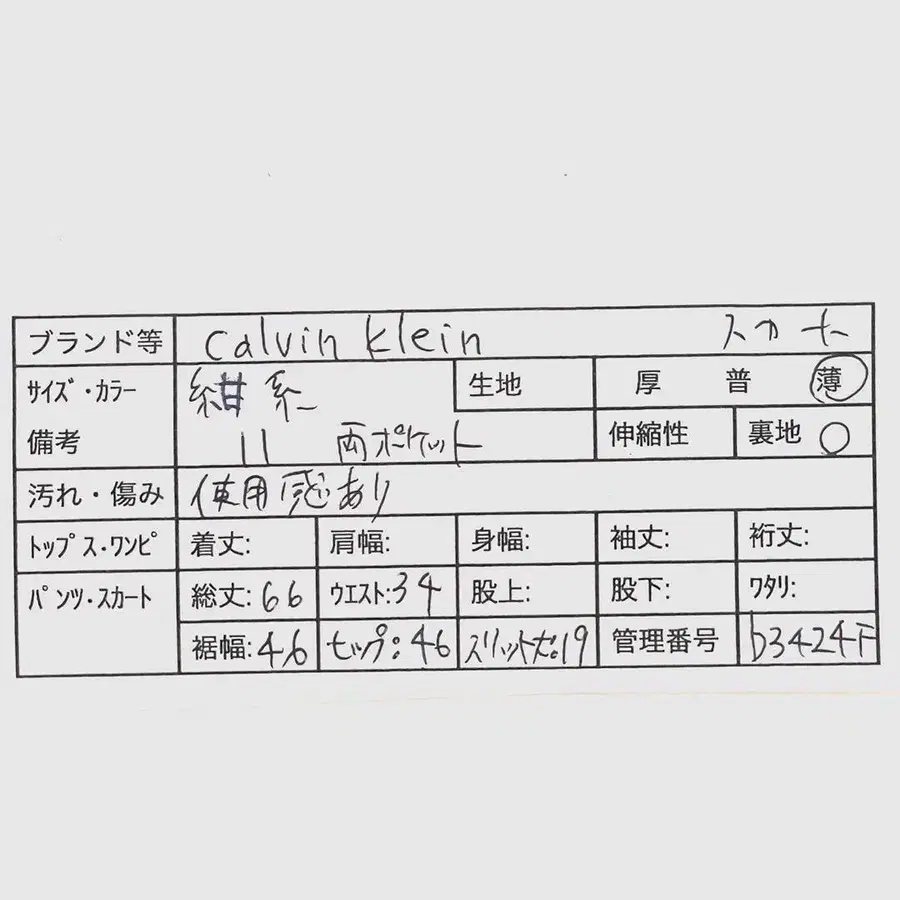 ブランド等 calvin klein スカート
サイズ・カラー 紺系 生地 厚 普 薄
備考 11 両ポケット 伸縮性 裏地 ○
汚れ・傷み 使用感あり
トップス・ワンピ 着丈: 肩幅: 身幅: 袖丈: 裄丈:
パンツ・スカート 総丈:66 ウエスト:34 股上: 股下: ワタリ:
裾幅:46 ヒップ:46 スリット丈:19 管理番号 b3424F